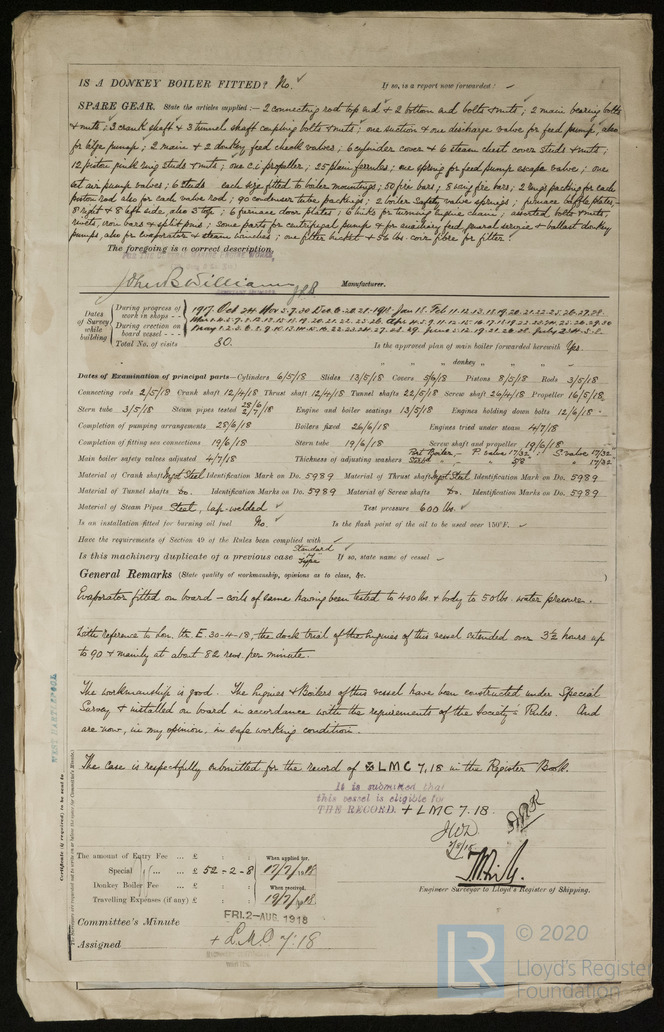 IS A DONKEY BOILER FITTED? No. ✓ If so, is a report now forwarded? ✓
SPARE GEAR. State the articles supplied:— 2 connecting rod top end & 2 bottom end bolts & nuts; 2 main bearing bolts
& nuts; 3 crank shaft & 3 tunnel shaft coupling bolts & nuts; one suction & one discharge valve for feed pump, also
for bilge pump; 2 main & 2 donkey feed check valves; 6 cylinder cover & 6 steam chest cover studs & nuts;
12 piston junk ring studs & nuts; one c.i. propeller; 25 plain ferrules; one spring for feed pump escape valve; one
set air pump valves; 6 studs each size fitted to boiler mountings; 50 fire bars; 2 rings packing for each
piston rod also for each valve rod; 90 condenser tube packings; 2 boiler safety valve springs; furnace baffle plates,—
8 right & 8 left side, also 3 top; 6 furnace door plates; 6 links for turning engine chain; assorted bolts & nuts,
rivets, iron bars & split pins; some parts for centrifugal pump & for auxiliary feed, general service & ballast donkey
pumps, also for evaporator & steam winches; one filter bucket & 56 lbs. coir fibre for filter.
The foregoing is a correct description,
John B Williams Manufacturer.
Dates of Survey while building
During progress of work in shops - - 1917. Oct 24 Nov 5.7.30 Dec 6.20.28 1918 Jan 18. Feb 11.12.13.18.19.20.21.22.25.26.27.28.
During erection on board vessel - - -
Total No. of visits 80. Is the approved plan of main boiler forwarded herewith Yes.
" " " donkey " " "
Dates of Examination of principal parts—Cylinders 6/5/18 Slides 13/5/18 Covers 5/6/18 Pistons 8/5/18 Rods 3/5/18
Connecting rods 2/5/18 Crank shaft 12/4/18 Thrust shaft 12/4/18 Tunnel shafts 22/5/18 Screw shaft 26/4/18 Propeller 16/5/18
Stern tube 3/5/18 Steam pipes tested 28/6/ 2/7/18 Engine and boiler seatings 13/5/18 Engines holding down bolts 12/6/18
Completion of pumping arrangements 28/6/18 Boilers fixed 26/6/18 Engines tried under steam 4/7/18
Completion of fitting sea connections 19/6/18 Stern tube 19/6/18 Screw shaft and propeller 19/6/18
Main boiler safety valves adjusted 4/7/18 Thickness of adjusting washers Port Boiler - P valve 17/32; S. valve 17/32
Starbd " " 5/8 " 17/32
Material of Crank shaft Ingot Steel Identification Mark on Do. 5989 Material of Thrust shaft Ingot Steel Identification Mark on Do. 5989
Material of Tunnel shafts Do. Identification Marks on Do. 5989 Material of Screw shafts Do. Identification Marks on Do. 5989
Material of Steam Pipes Steel, lap-welded ✓ Test pressure 600 lbs. ✓
Is an installation fitted for burning oil fuel No. ✓ Is the flash point of the oil to be used over 150°F. ✓
Have the requirements of Section 49 of the Rules been complied with ✓
Is this machinery duplicate of a previous case Standard "H" Type If so, state name of vessel ✓
General Remarks (State quality of workmanship, opinions as to class, &c. )
Evaporator fitted on board — coils of same having been tested to 400 lbs. & body to 50 lbs. water pressure.
With reference to Lon. ltr. E. 30-4-18, the dock trial of the Engines of this vessel extended over 3½ hours up
to 90 & mainly at about 82 revs. per minute.
The workmanship is good. The Engines & Boilers of this vessel have been constructed under Special
Survey & installed on board in accordance with the requirements of the Society's Rules. And
are now, in my opinion, in safe working condition.
The case is respectfully submitted for the record of ✠ LMC 7,18 in the Register Book.
It is submitted that
this vessel is eligible for
THE RECORD. + LMC 7.18.
WEST HARTLEPOOL
Certificate (if required) to be sent to
The amount of Entry Fee ... £ : : When applied for,
Special " ... ... £ 52 - 2 - 8 17/7/1918
Donkey Boiler Fee ... £ : : When received,
Travelling Expenses (if any) £ : : 19/7/1918
Engineer Surveyor to Lloyd's Register of Shipping.
Committee's Minute FRI. 2-AUG 1918
Assigned + LMC 7.18
LR
© 2020
Lloyd's Register
Foundation